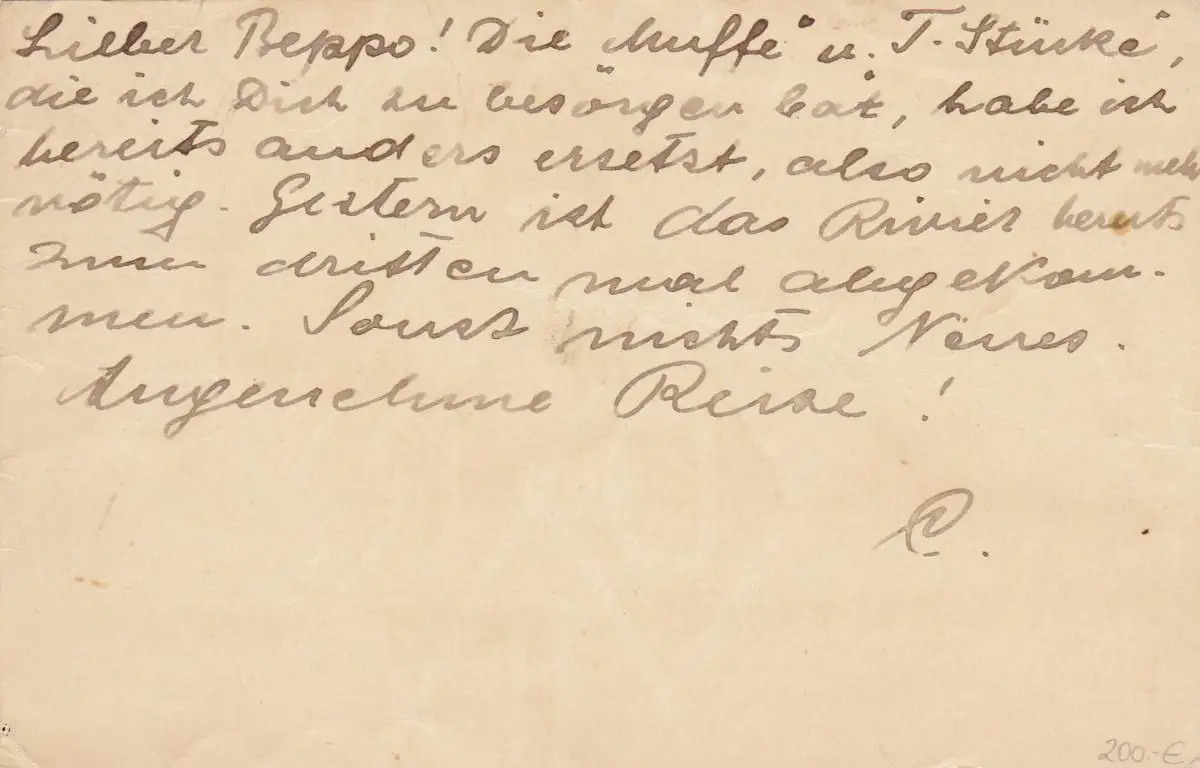 Lieber Beppo! Die Muffe u. T-Stücke,
die ich Dich zu besorgen bat, habe ich
bereits anders ersetzt, also nicht mehr
nötig. Gestern ist das Rivier bereits
zum dritten mal abgekom-
men. Sonst nichts Neues.
Angenehme Reise!
P.
200.-€